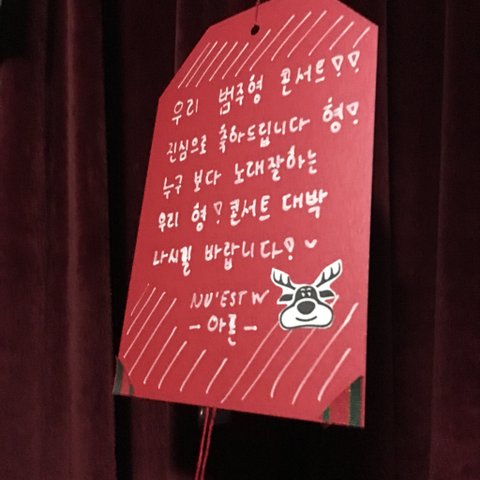 우리 범주형 콘서트!!
진심으로 축하드립니다 형!
누구 보다 노래잘하는
우리 형! 콘서트 대박
나시길 바랍니다! ♥
NU'EST W
- 아론 -